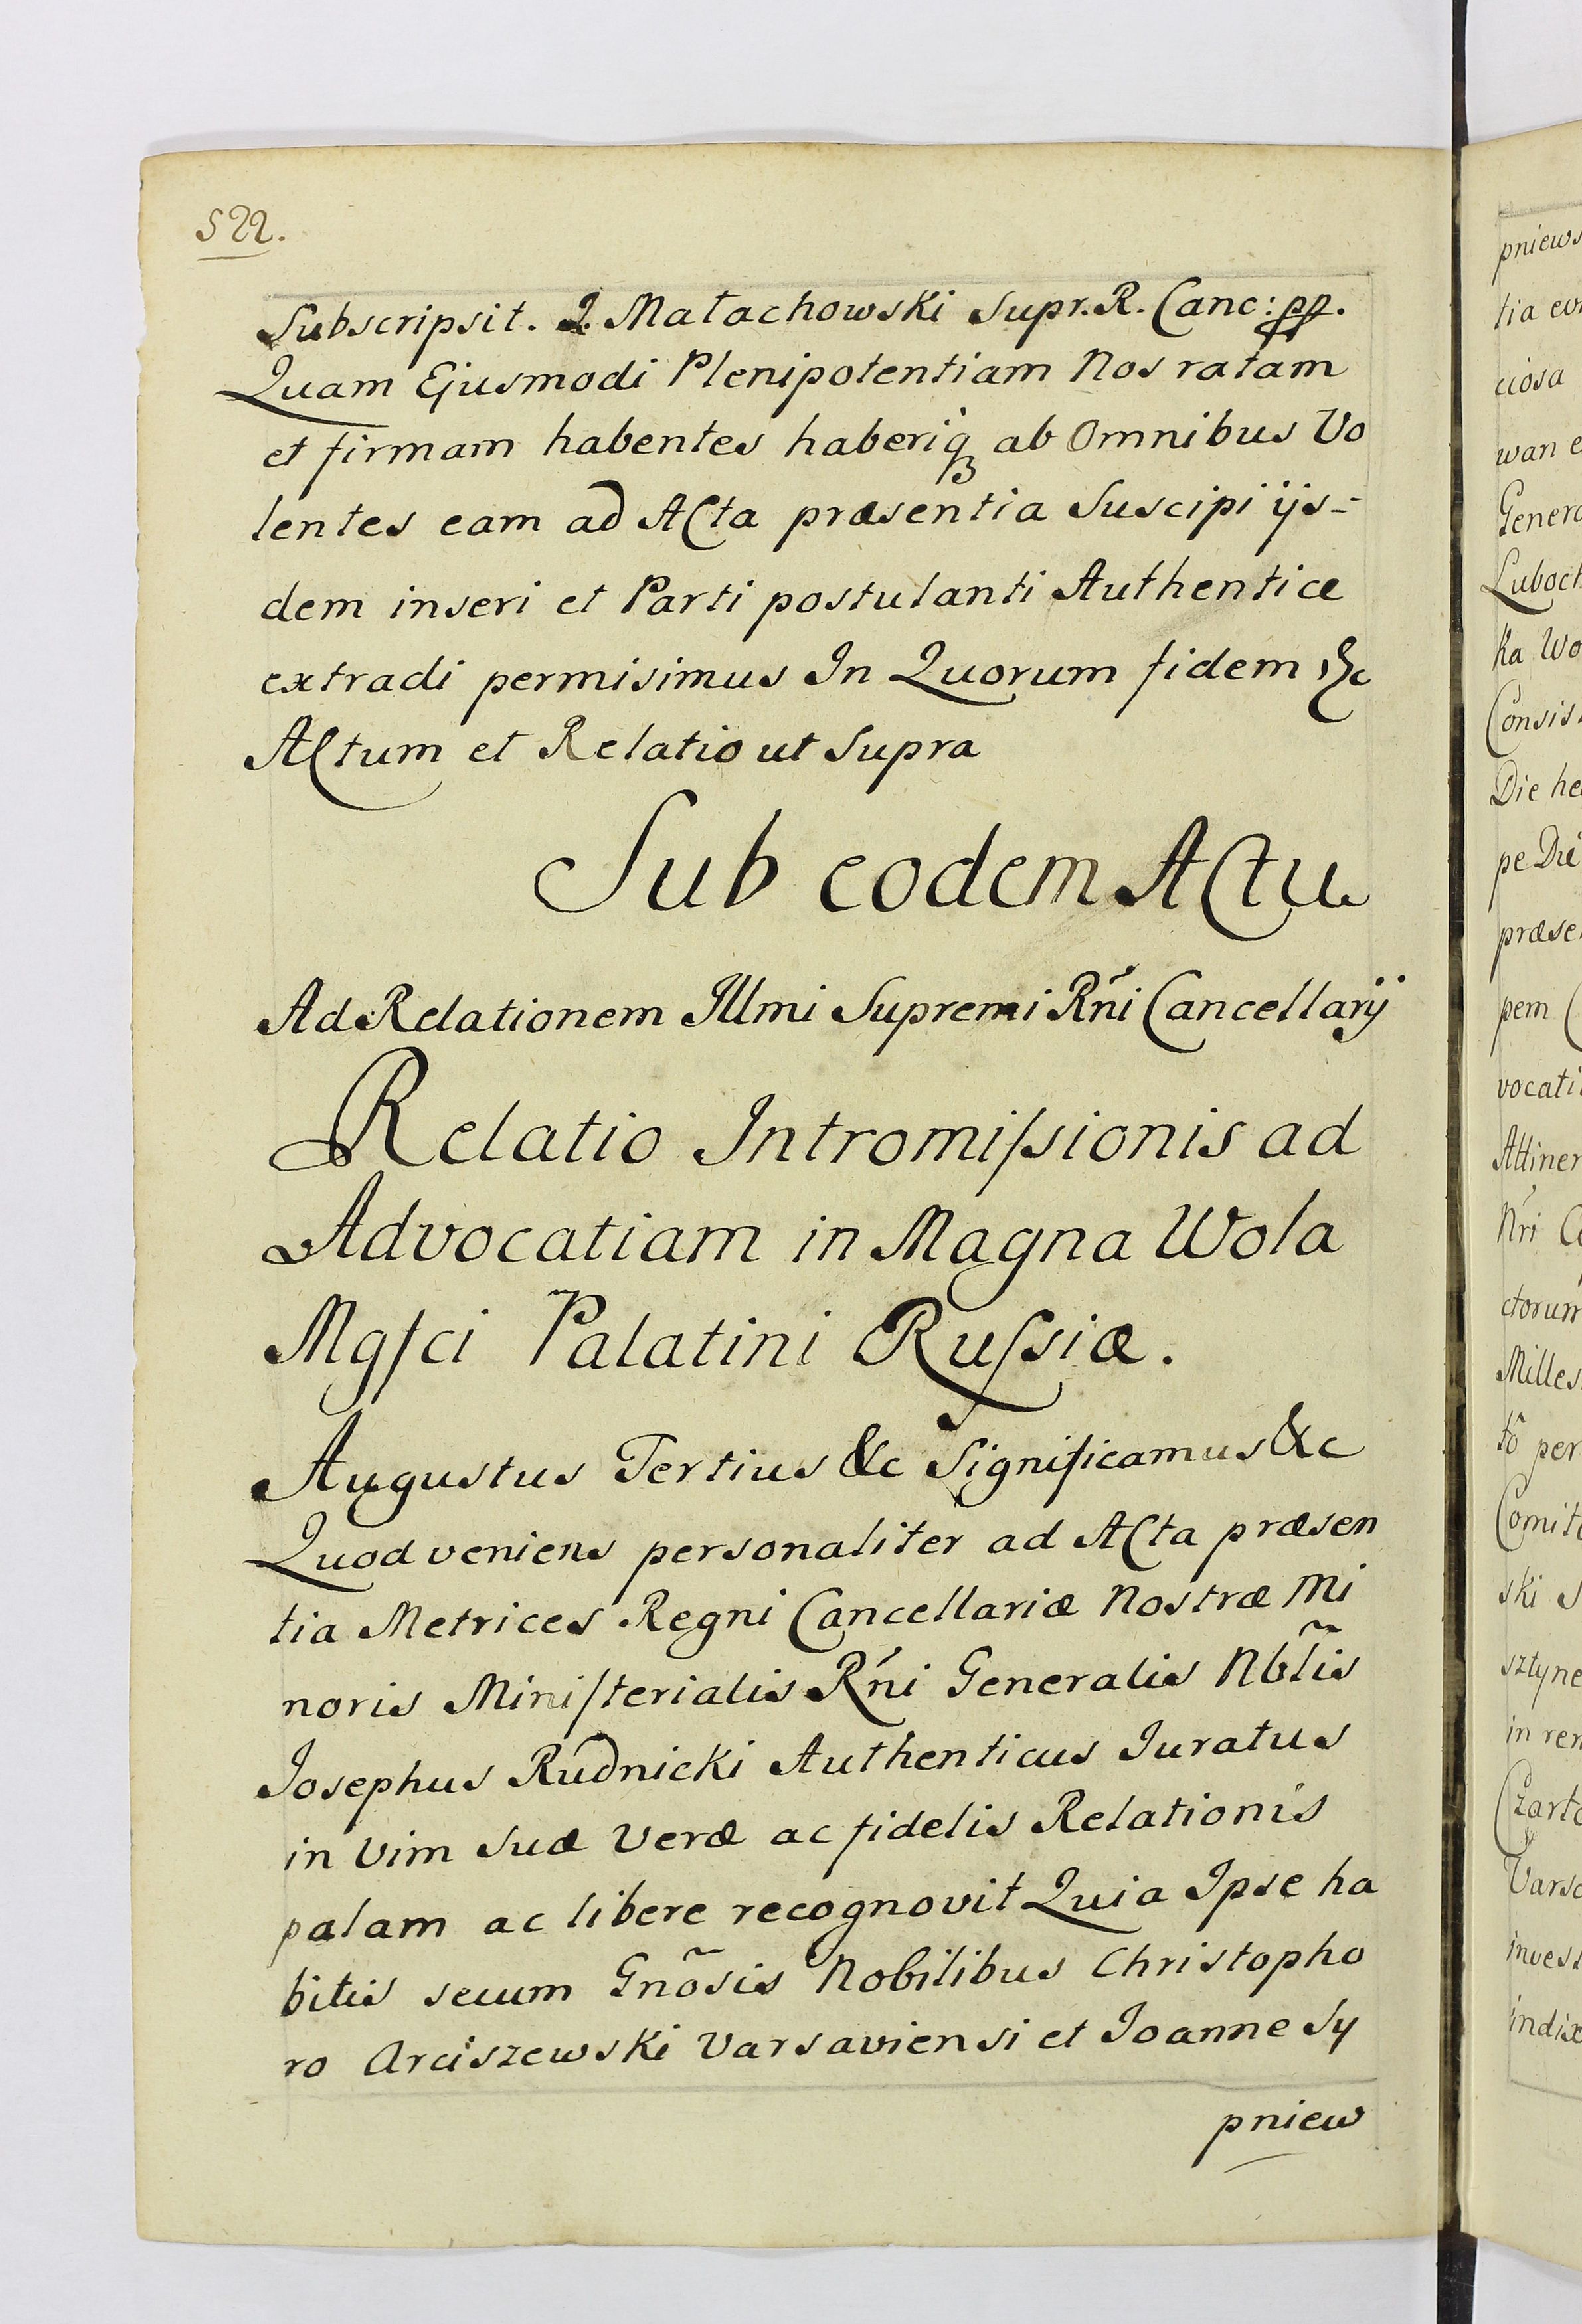 522.
Subscripsit. J. Małachowski Supr. R. Canc: pp.
Quam Ejusmodi Plenipotentiam Nos ratam
et firmam habentes haberiq3 ab Omnibus Vo
lentes eam ad Acta præsentia Suscipi ijs=
dem inseri et Parti postulanti Authentice
extradi permisimus In Quorum fidem &c
Actum et Relatio ut Supra
Sub eodem Actu
Ad Relationem Illmi Supremi Rńi Cancellarij
Relatio Intromiſsionis ad
Advocatiam in Magna Wola
Mgſci Palatini Ruſsiæ.
Augustus Tertius &c Significamus &c
Quod veniens personaliter ad Acta præsen
tia Metrices Regni Cancellariæ Nostræ Mi
noris Miniſterialis Rńi Generalis Nbl̃is
Josephus Rudnicki Authenticus Juratus
in Vim Suæ Veræ ac fidelis Relationis
palam ac libere recognovit Quia Ipse ha
bitis secum Gnõsis Nobilibus Christopho
ro Arciszewski Varsaviensi et Joanne Sy
pniew
pniews
tia
ciosa
wan
Genera
Luboch
ka Wo
Consis
Die
pe
præse
pem
vocati
Attinen
Nri
ctorum
Milles
tõ per
Comit
ski
sztyne
in
Czarto
Varsa
invest
indix